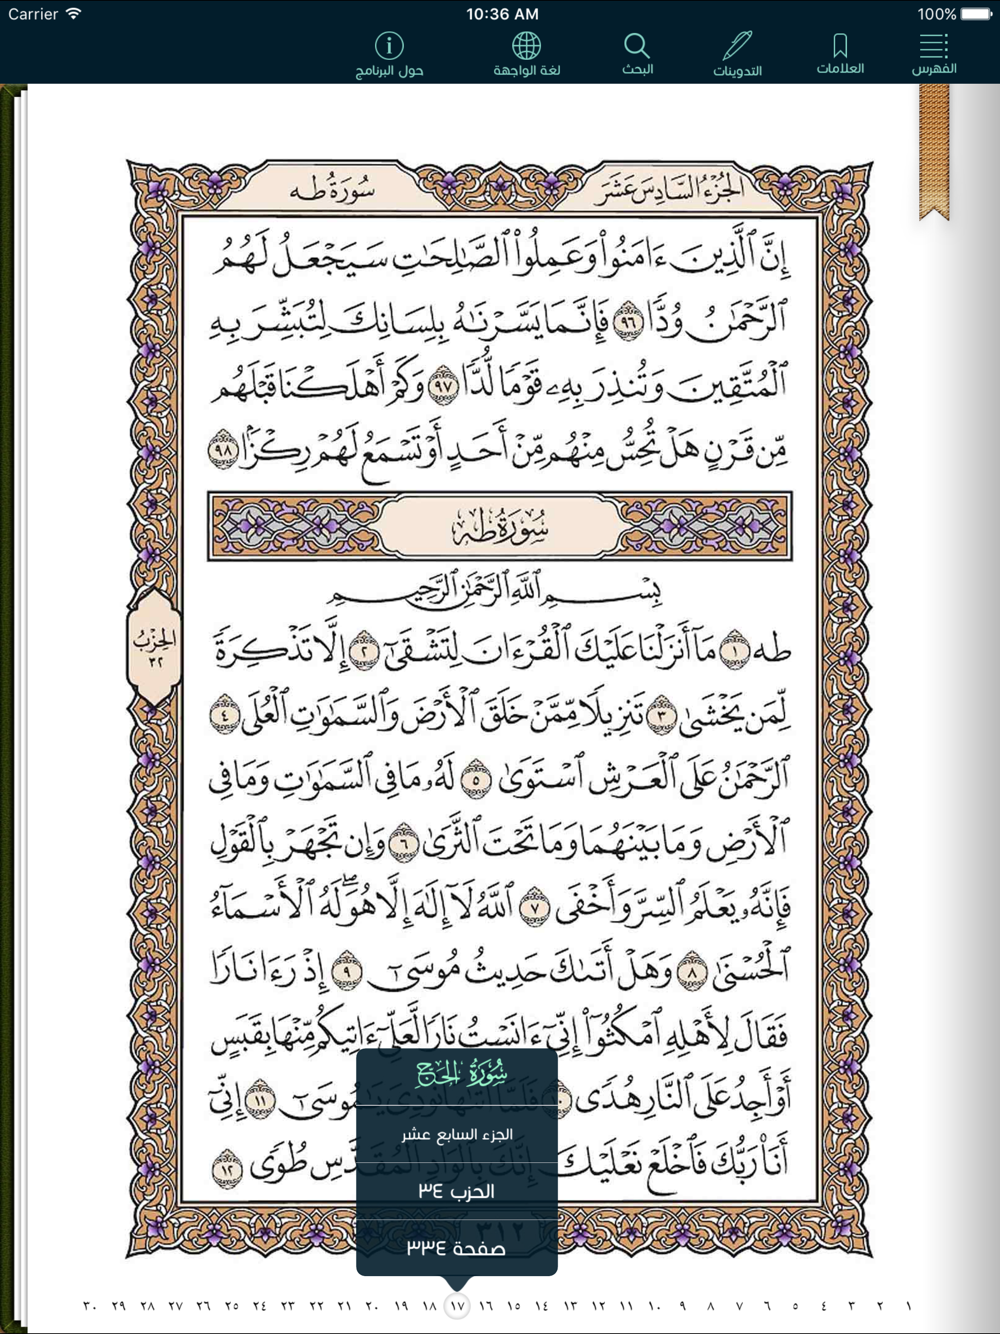 Carrier 10:36 AM 100%
الفهرس العلامات التدوينات البحث لغة الواجهة حول البرنامج
الجزء السادس عشر سورة طه
إِنَّ ٱلَّذِينَ ءَامَنُوا۟ وَعَمِلُوا۟ ٱلصَّـٰلِحَـٰتِ سَيَجْعَلُ لَهُمُ
ٱلرَّحْمَـٰنُ وُدًّا ٩٦ فَإِنَّمَا يَسَّرْنَـٰهُ بِلِسَانِكَ لِتُبَشِّرَ بِهِ
ٱلْمُتَّقِينَ وَتُنذِرَ بِهِۦ قَوْمًا لُّدًّا ٩٧ وَكَمْ أَهْلَكْنَا قَبْلَهُم
مِّن قَرْنٍ هَلْ تُحِسُّ مِنْهُم مِّنْ أَحَدٍ أَوْ تَسْمَعُ لَهُمْ رِكْزًۢا ٩٨
سُورَةُ طه
بِسْمِ ٱللَّهِ ٱلرَّحْمَـٰنِ ٱلرَّحِيمِ
طه ١ مَآ أَنزَلْنَا عَلَيْكَ ٱلْقُرْءَانَ لِتَشْقَىٰٓ ٢ إِلَّا تَذْكِرَةً
لِّمَن يَخْشَىٰ ٣ تَنزِيلًا مِّمَّنْ خَلَقَ ٱلْأَرْضَ وَٱلسَّمَـٰوَٰتِ ٱلْعُلَى ٤
ٱلرَّحْمَـٰنُ عَلَى ٱلْعَرْشِ ٱسْتَوَىٰ ٥ لَهُۥ مَا فِى ٱلسَّمَـٰوَٰتِ وَمَا فِى
ٱلْأَرْضِ وَمَا بَيْنَهُمَا وَمَا تَحْتَ ٱلثَّرَىٰ ٦ وَإِن تَجْهَرْ بِٱلْقَوْلِ
فَإِنَّهُۥ يَعْلَمُ ٱلسِّرَّ وَأَخْفَى ٧ ٱللَّهُ لَآ إِلَـٰهَ إِلَّا هُوَ ۖ لَهُ ٱلْأَسْمَآءُ
ٱلْحُسْنَىٰ ٨ وَهَلْ أَتَىٰكَ حَدِيثُ مُوسَىٰٓ ٩ إِذْ رَءَا نَارًا
فَقَالَ لِأَهْلِهِ ٱمْكُثُوٓا۟ إِنِّىٓ ءَانَسْتُ نَارًا لَّعَلِّىٓ ءَاتِيكُم مِّنْهَا بِقَبَسٍ
أَوْ أَجِدُ عَلَى ٱلنَّارِ هُدًى ١٠ فَلَمَّآ أَتَىٰهَا نُودِىَ يَـٰمُوسَىٰٓ ١١ إِنِّىٓ
أَنَا۠ رَبُّكَ فَٱخْلَعْ نَعْلَيْكَ إِنَّكَ بِٱلْوَادِ ٱلْمُقَدَّسِ طُوًى ١٢
الحزب
٣٢
٣١٢
سورة الحج
الجزء السابع عشر
الحزب ٣٤
صفحة ٣٣٤
١ ٢ ٣ ٤ ٥ ٦ ٧ ٨ ٩ ١٠ ١١ ١٢ ١٣ ١٤ ١٥ ١٦ ١٧ ١٨ ١٩ ٢٠ ٢١ ٢٢ ٢٣ ٢٤ ٢٥ ٢٦ ٢٧ ٢٨ ٢٩ ٣٠